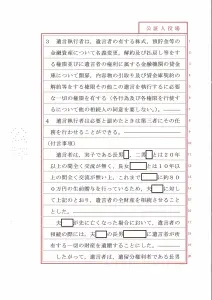 公証人役場
3 遺言執行者は、遺言者の有する株式、預貯金等の
金融資産について名義変更、解約及び払戻し等をす
る権限並びに遺言者の権利に属する金融機関の貸金
庫について開扉、内容物の引取り及び貸金庫契約の
解約等をする権限その他この遺言を執行するに必要
な一切の権限を有する（各行為及び各権限を行使す
るについて他の相続人の同意を要しない）。
4 遺言執行者は必要と認めたときは第三者にその任
務を行わせることができる。
（付言事項）
遺言者は、双子である長男、二男とは20年
以上の間全く交流が無く、長女とは10年以
上の間全く交流が無い上、これまでに約80
0万円の生前贈与を行っているため、夫に対し
て上記のとおり、遺言者の全財産を相続させること
とした。
夫が先に亡くなった場合において、遺言者の
相続の際には、夫の長男に遺言者が所
有する一切の財産を遺贈することにした。
したがって、遺言者は、遺留分権利者である長男